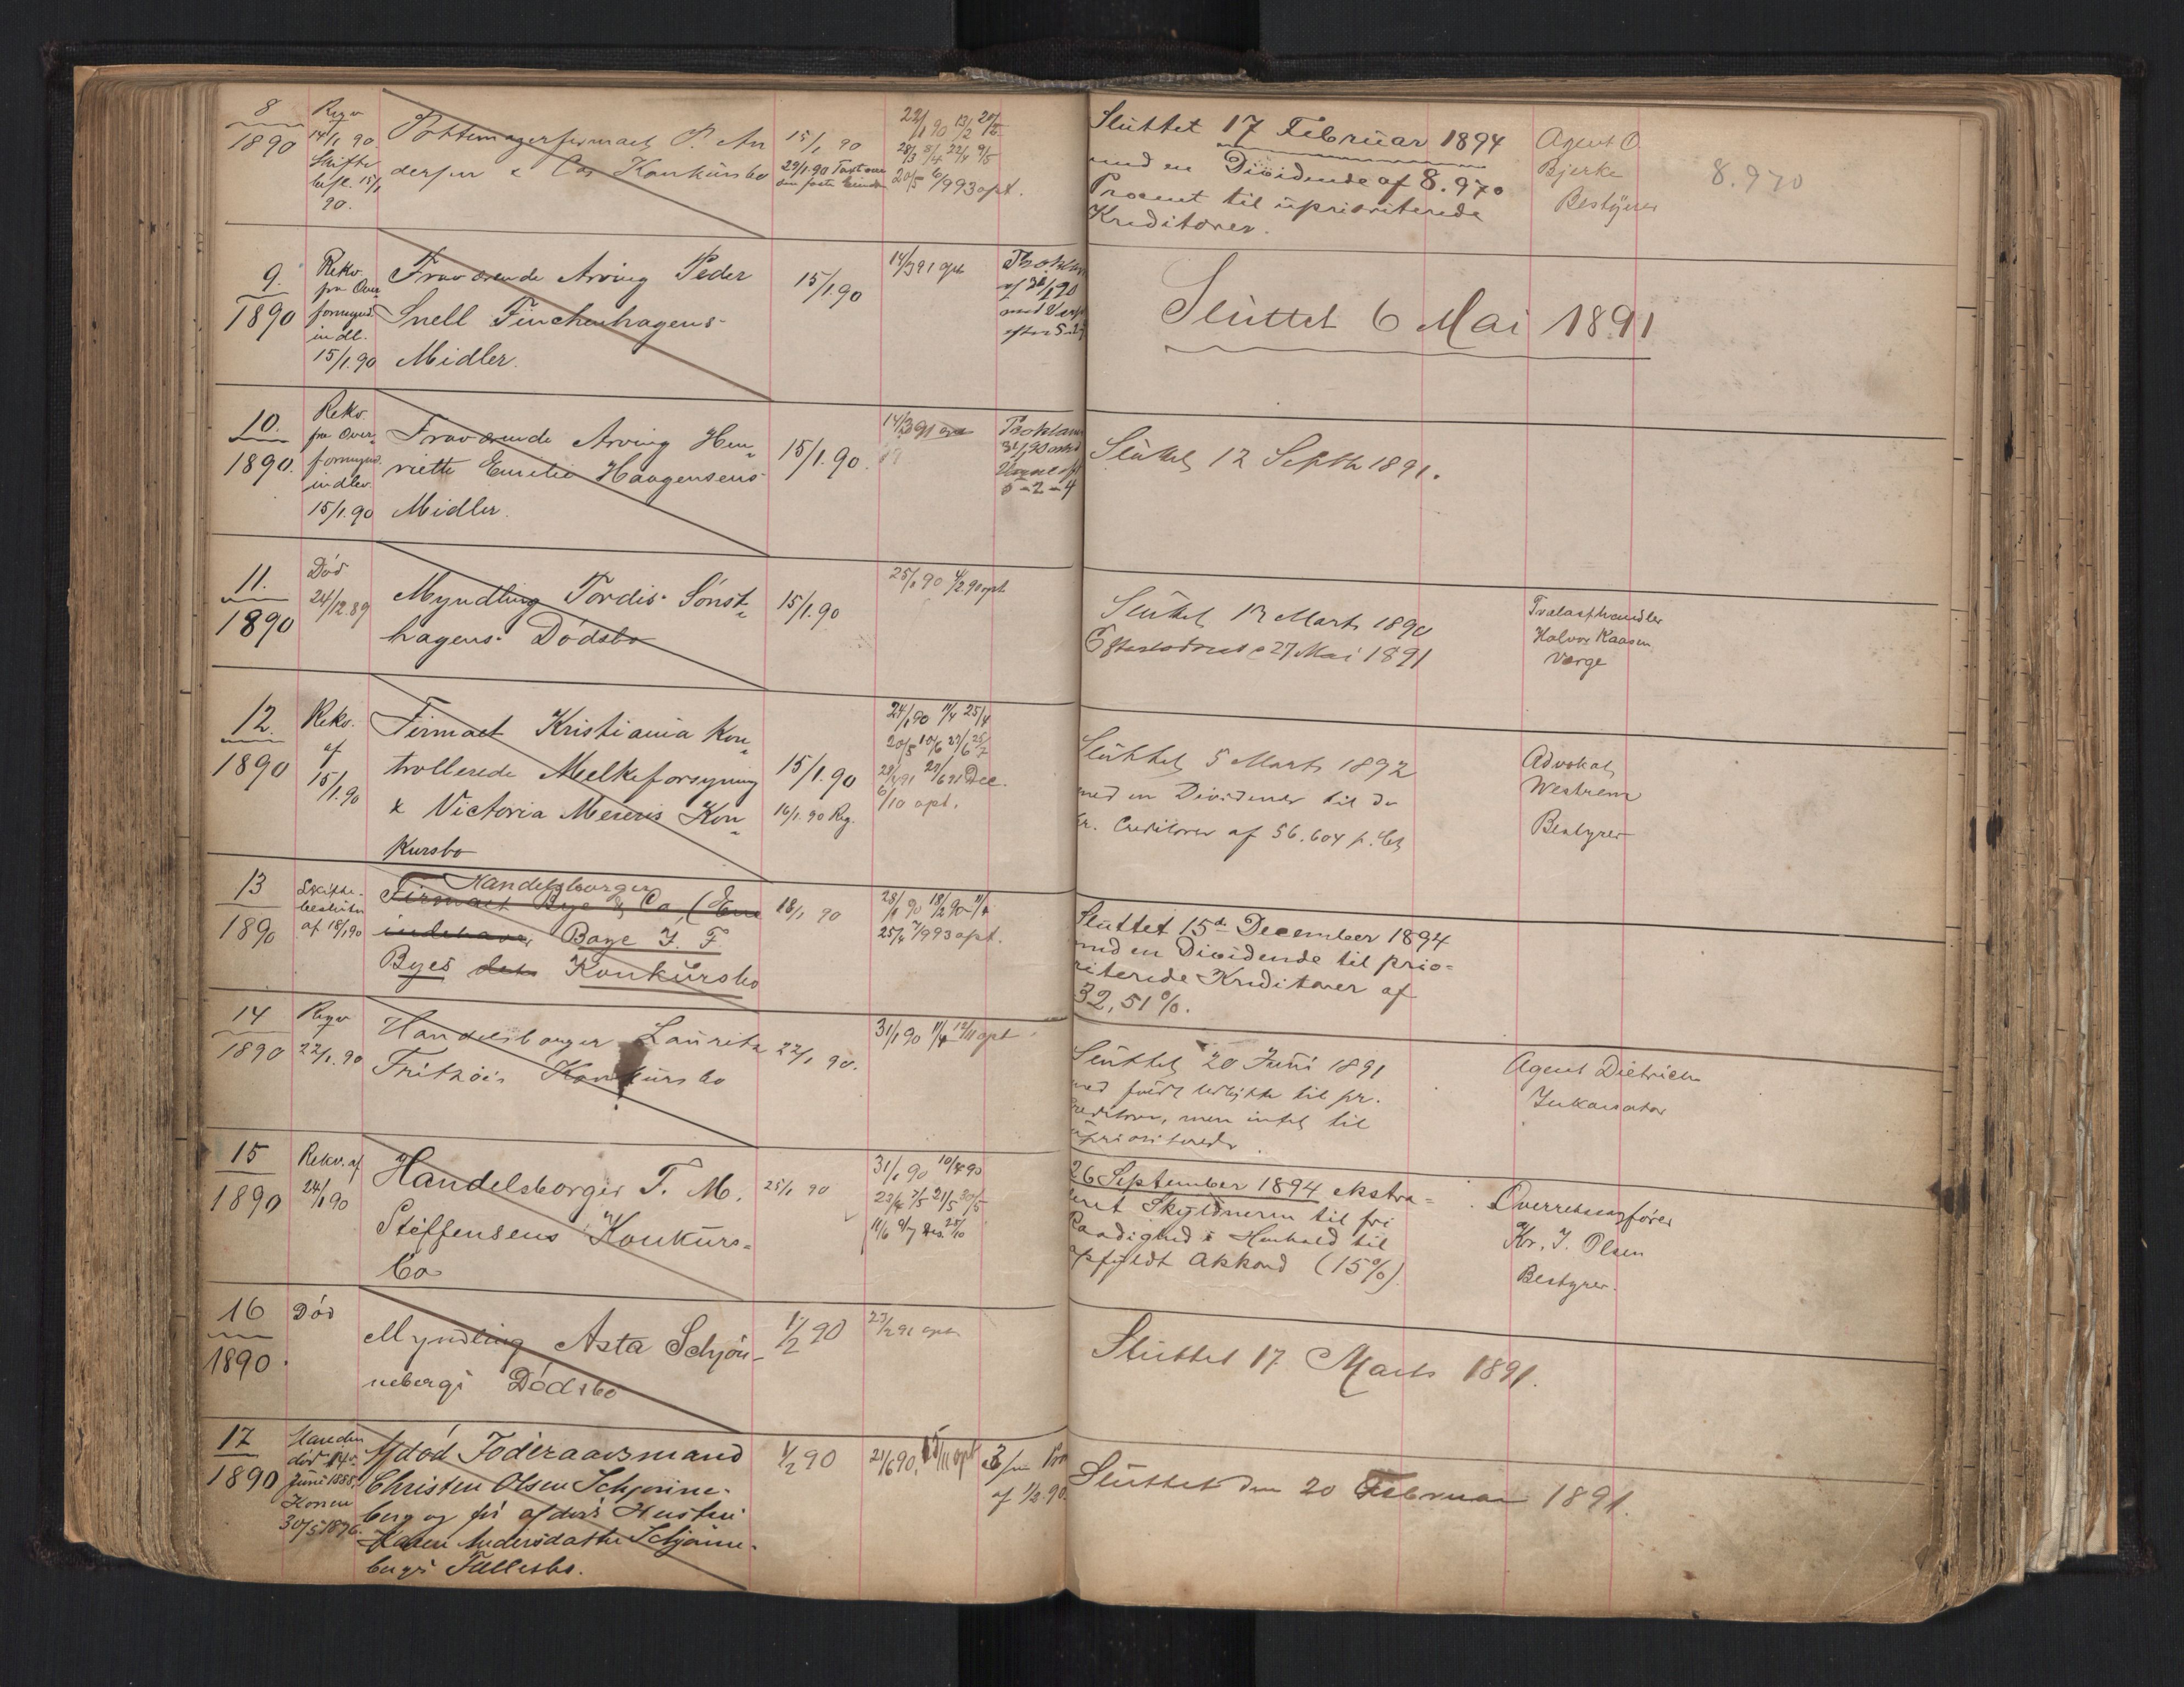 8
1890
14/1 90
Skifte
15/1
90.
Pottemagerfirmaet P. An
dersen & Cos Konkursbo
15/1 90
29/1 90
22/1 90 13/2
28/3 8/4 22/4 9/5
20/5 6/9 93 opt.
Sluttet 17 Februar 1894
med en Dividende af 8.970
Procent til upriviterede
Kreditorer.
Agent O.
Bjerke
Bestyrer
8.970
9.
1890
Rekv.
fra Over
formynd.
indl.
15/1.90
Fraværende Arving Peder
Snell Finckenhagens
Midler.
15/1.90
14/3 91 opt
Sluttet 6 Mai 1891
10.
1890.
Rekv.
fra Over
formynd.
indlev.
15/1.90
Fraværende Arving Hen
riette Emilie Haagensens
Midler.
15/1.90.
14/3 91
Proklam
5-2-4
Sluttet 12 Septb 1891.
11.
1890
Død
24/12.89
Myndling Tordis Sønst
hagens Dødsbo
15/1.90
25/1 90 4/2 90 opt
Sluttet 13 Marts 1890
27 Mai 1891
Trælasthandler
Halvor Kaasen
Værge
12.
1890
Rekv.
af
15/1.90
Firmaet Kristiania Kon
trollerede Melkeforsyning
& Victoria Meieris Kon
kursbo
15/1.90
16/1.90 Reg.
24/1 90 11/4 25/4
20/5 10/6 27/6 25/7
Dec.
6/10 opt.
Sluttet 5 Marts 1892
med en Dividende til de
pr. Creditorer af 56.604 p. Ct
Advokat
Westrem
Bestyrer
13
1890
Skifte-
beslutn
af 18/1 90
Handelsborger
Firmaet Bye & Co, (Ene
indehaver Baye J. F.
Byes Konkursbo
18/1 90
28/1 90 18/2 90 11/4
25/4 7/9 93 opt.
Sluttet 15de December 1894
med en Dividende til prio=
riterede Kreditorer af
32,51%.
14
1890
22/1.90
Handelsborger Lauritz
Frithois Konkursbo
22/1 90.
31/1 90 11/4 12/11 opt
Sluttet 20 Juni 1891
med til pr.
Creditorer, men intet til
upriviterede.
Agent Dietrichs
Inkassator
15
1890
Rekv. af
24/1 90
Handelsborger T. M.
Steffensens Konkurs=
bo
25/1 90
31/1 90 10/4 90
23/4 7/5 21/5 30/5
11/6 9/7 25/10
26 September 1894 ekstra=
Skyldneren til fri
Raadighed i Henhold til
opfyldt Akkord (15%).
Overretssagfører
Kr. J. Olsen
Bestyrer.
16
1890.
Død
Myndling Asta Schjøn
nebergs Dødsbo
1/2 90
27/2 91 opt.
Sluttet 17 Marts 1891.
17
1890
Manden
død 14de
Juni 1888
Konen
30/5 1876.
Afdød Føderaadsmand
Christen Olsen Schjønne-
berg og før afdøde Hustru
Karen Andersdatter Schjønne-
bergs Fællesbo.
1/2 90
21/6 90. opt
af 1/2.90.
Sluttet den 20 Februar 1891.